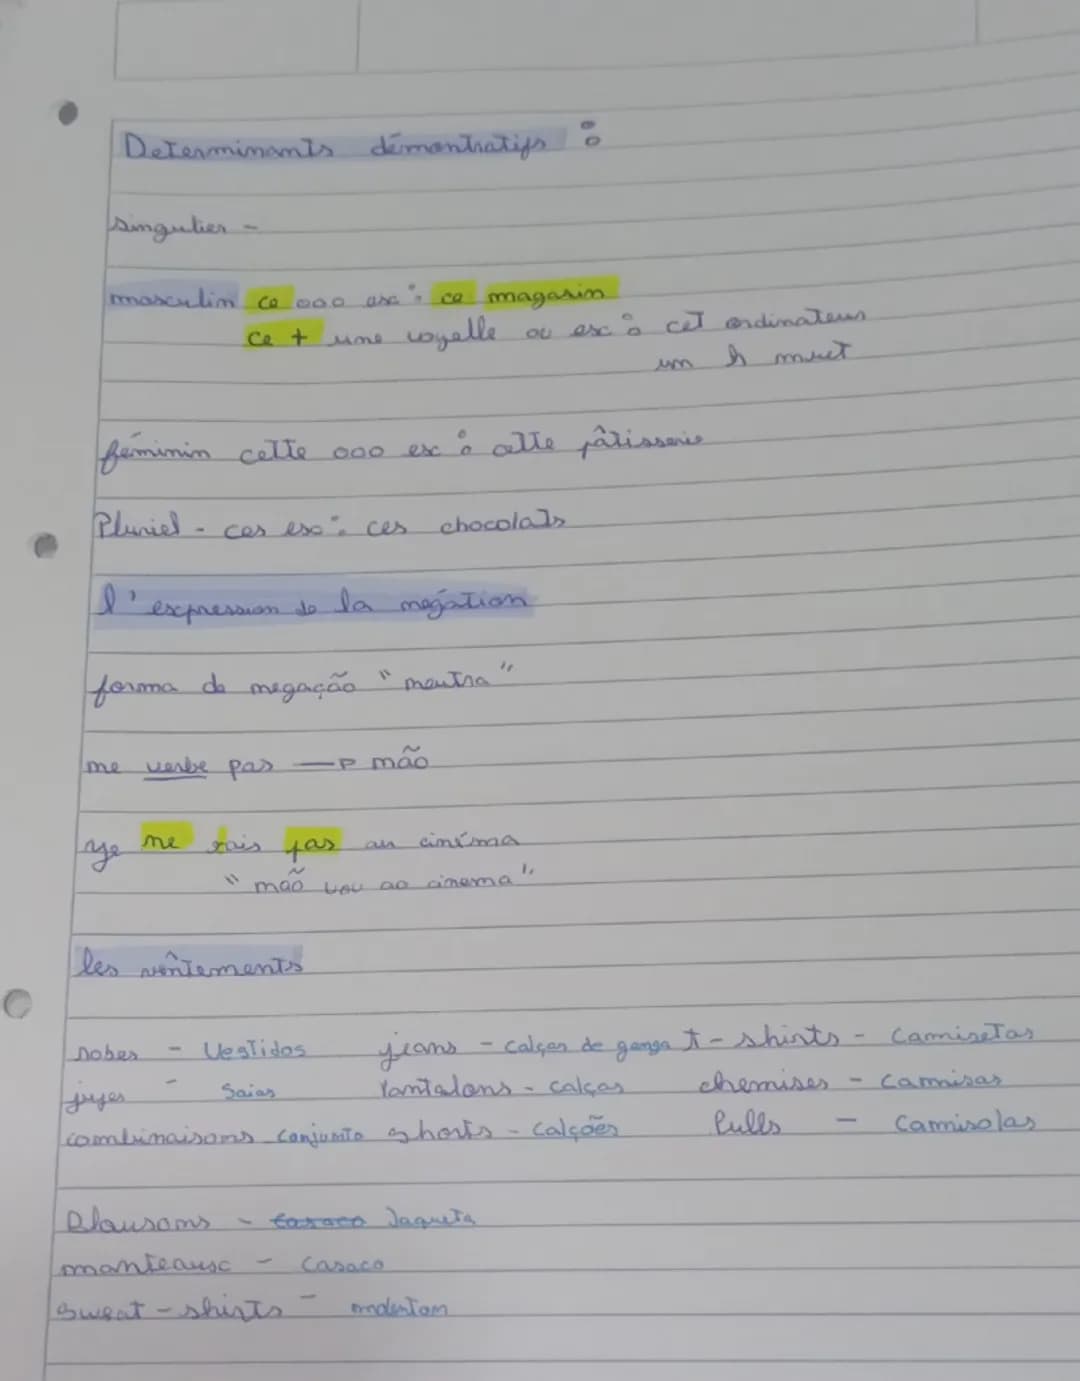 Determinants démontratifs :
singulier -
masculin ce ooo ex : ce magasin
ce + une voyelle ou ex : cet ordinateur
un h muet
féminin cette ooo ex : cette pâtisserie
Pluriel - ces ex : ces chocolats
l'expression de la négation
forma de negação "neutra"
ne verbe pas → não
ye ne vais pas au cinéma
"não vou ao cinema"
les vêntements
robes - Vestidos jeans - calças de ganga t-shirts - Camisetas
jupes - Saias Pantalons - calças chemises - Camisas
combinaisons conjunto shorts - calções Pulls - Camisolas
Blousons - casaco Jaqueta
manteaux - Casaco
Sweat-shirts -